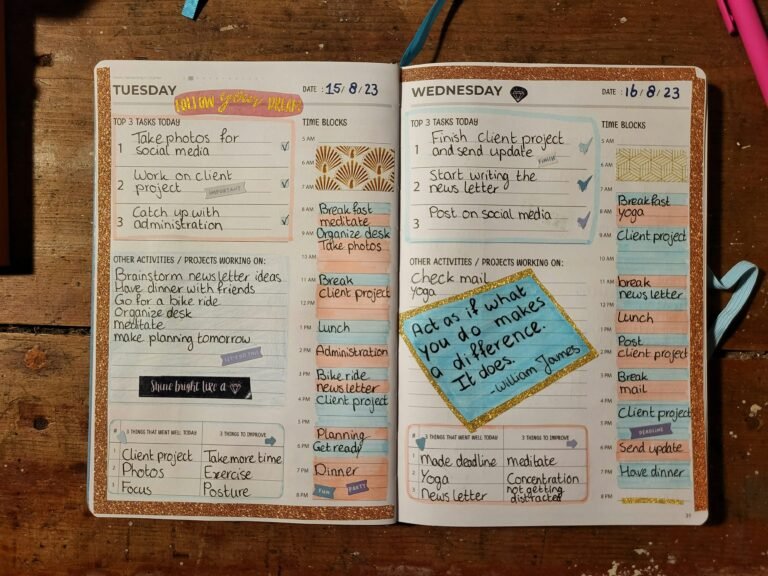 TUESDAY
FOLLOW your DREAMS
DATE : 15/8/23
TOP 3 TASKS TODAY
1 Take photos for
social media
2 Work on client
project
IMPORTANT
3 Catch up with
administration
OTHER ACTIVITIES / PROJECTS WORKING ON:
Brainstorm newsletter ideas
Have dinner with friends
Go for a bike ride
Organize desk
meditate
make planning tomorrow
Shine bright like a
# 3 THINGS THAT WENT WELL TODAY 3 THINGS TO IMPROVE
1 Client project Take more time
2 Photos Exercise
3 Focus Posture
TIME BLOCKS
5 AM
6 AM
7 AM
8 AM Breakfast
meditate
9 AM Organize desk
Take photos
11 AM Break
client project
12 PM
1 PM Lunch
2 PM Administration
3 PM Bike ride
newsletter
4 PM Client project
5 PM
Planning
6 PM Get ready
7 PM Dinner
8 PM FUN PARTY
WEDNESDAY
DATE : 16/8/23
TOP 3 TASKS TODAY
1 Finish client project
and send update
FINISH
2 Start writing the
news letter
3 Post on social media
OTHER ACTIVITIES / PROJECTS WORKING ON:
Check mail
Yoga
Act as if what
you do makes
a difference.
It does.
-William James
# 3 THINGS THAT WENT WELL TODAY 3 THINGS TO IMPROVE
1 Made deadline meditate
2 Yoga Concentration
3 News letter not getting
distracted
TIME BLOCKS
5 AM
6 AM
7 AM
Breakfast
8 AM yoga
9 AM Client project
11 AM break
news letter
12 PM
Lunch
1 PM
Post
2 PM client project
3 PM Break
mail
4 PM
Client project
5 PM
DEADLINE
6 PM Send update
7 PM Have dinner
8 PM
31